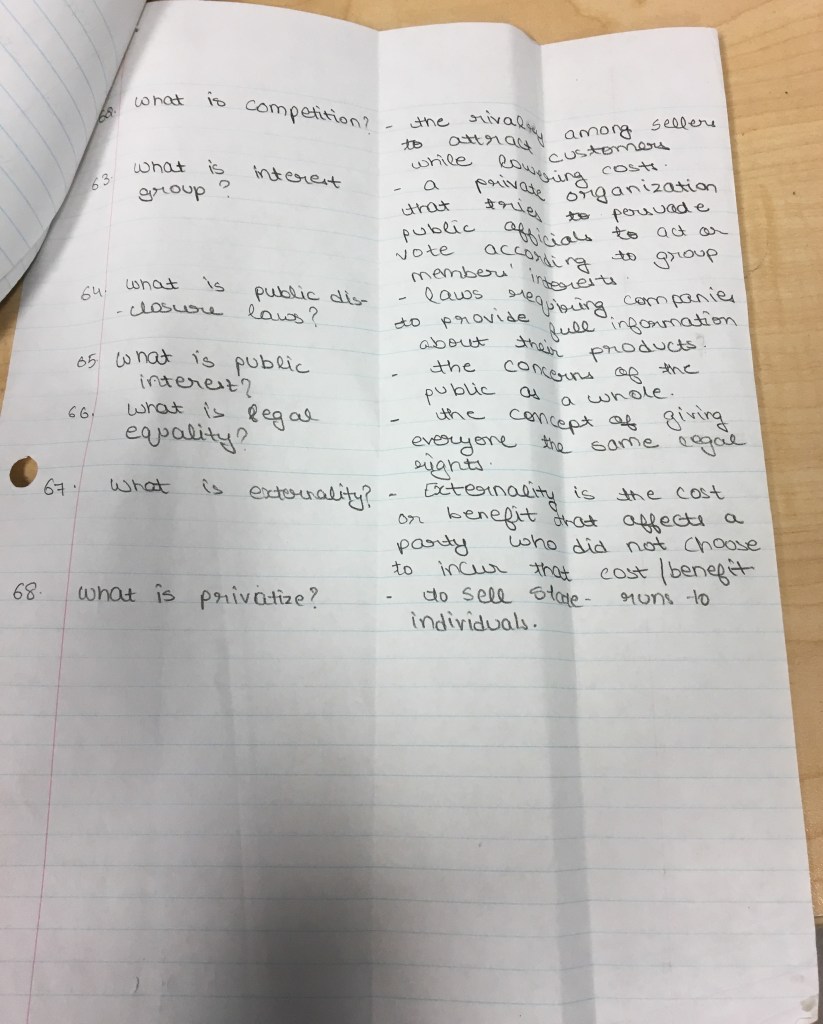 what is competition? - the rivalry among sellers
to attract customers
while lowering costs.
63. what is interest - a private organization
group? that tries to persuade
public officials to act or
vote according to group
members' interests.
64. what is public dis- - laws requiring companies
-closure laws? to provide full information
about their products.
65 what is public - the concerns of the
interest? public as a whole.
66. what is legal - the concept of giving
equality? everyone the same legal
rights.
67. what is externality? - Externality is the cost
or benefit that affects a
party who did not choose
to incur that cost/benefit
68. what is privatize? - to sell state- runs to
individuals.